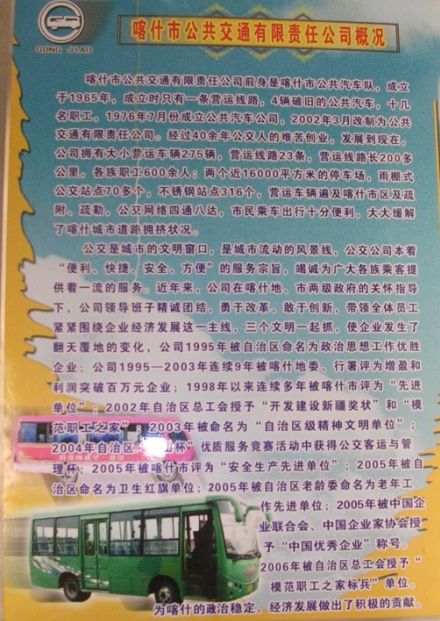 GONG JIAO
喀什市公共交通有限责任公司概况
喀什市公共交通有限责任公司前身是喀什市公共汽车队，成立
于1965年，成立时只有一条营运线路，4辆破旧的公共汽车，十几
名职工，1976年7月份成立公共汽车公司，2002年3月改制为公共
交通有限责任公司。经过40余年公交人的难苦创业，发展到现在，
公司拥有大小营运车辆275辆，营运线路23条，营运线路长200多
公里，各族职工600余人；两个近16000平方米的停车场，雨棚式
公交站点70多个，不锈钢站点316个，营运车辆遍及喀什市区及疏
附、疏勒，公交网络四通八达，市民乘车出行十分便利，大大缓解
了喀什城市道路拥挤状况。
公交是城市的文明窗口，是城市流动的风景线，公交公司本着
“便利、快捷、安全、方便”的服务宗旨，竭诚为广大各族乘客提
供着一流的服务。近年来，公司在喀什地、市两级政府的关怀指导
下，公司领导班子精诚团结、勇于改革、敢于创新，带领全体员工
紧紧围绕企业经济发展这一主线，三个文明一起抓，使企业发生了
翻天覆地的变化，公司1995年被自治区命名为政治思想工作优胜
企业；公司1995—2003年连续9年被喀什地委、行署评为增盈和
利润突破百万元企业；1998年以来连续多年被喀什市评为“先进
单位”；2002年自治区总工会授予“开发建设新疆奖状”和“模
范职工之家”；2003年被命名为“自治区级精神文明单位”；
2004年自治区 山杯”优质服务竞赛活动中获得公交客运与管
理杯；2005年被喀什市评为“安全生产先进单位”；2005年被自
治区命名为卫生红旗单位；2005年被自治区老龄委命名为老年工
作先进单位；2005年被中国企
业联合会、中国企业家协会授
予“中国优秀企业”称号。
2006年被自治区总工会授予“
模范职工之家标兵”单位。
为喀什的政治稳定、经济发展做出了积极的贡献。